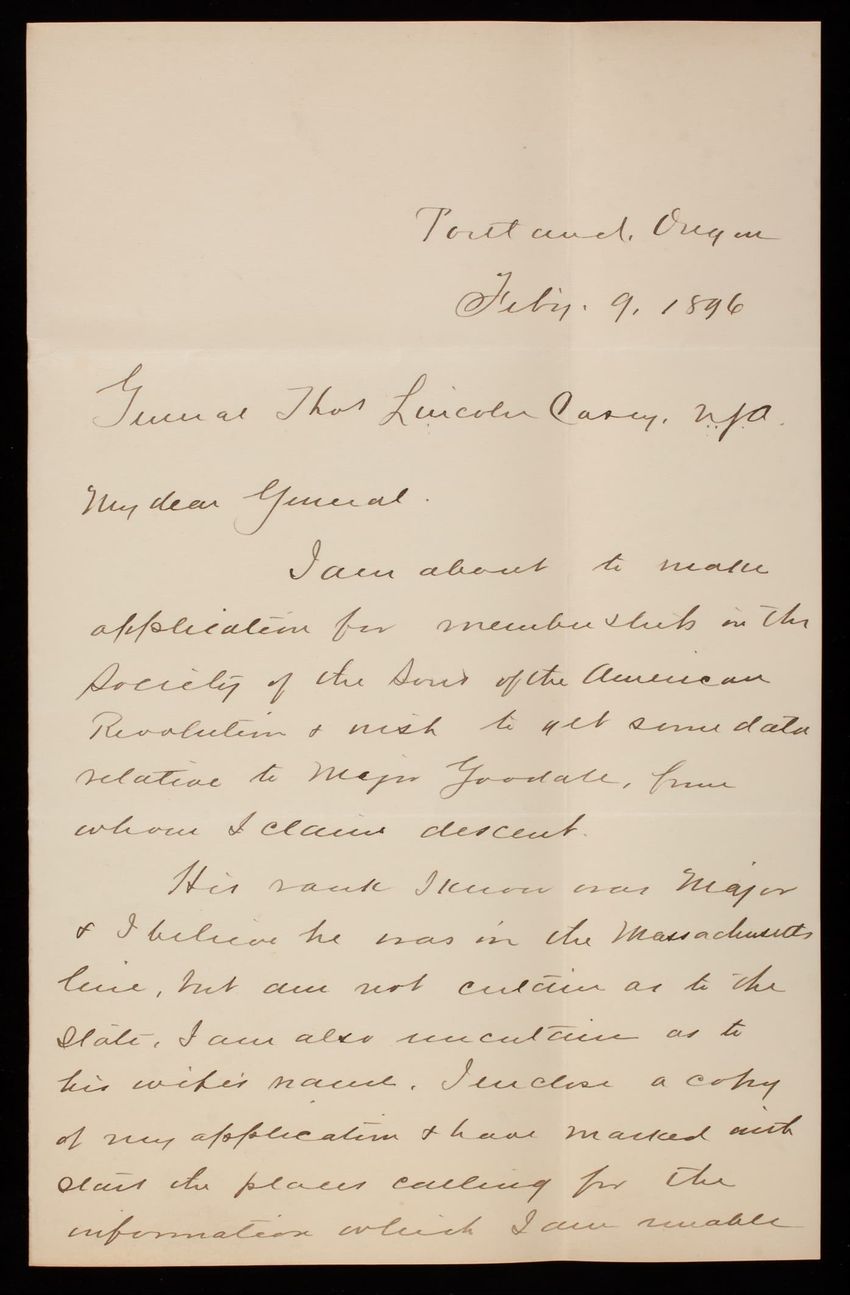 Portland, Oregon
Feb'y. 9, 1896
General Thos Lincoln Casey,
My dear General.
I am about to make
application for membership in the
Society of the Sons of the American
Revolution & wish to get some data
relative to Major Goodale, from
whom I claim descent.
His rank I know was Major
& I believe he was in the Massachusetts
line, but am not certain as to the
state. I am also uncertain as to
his wife's name. I enclose a copy
of my application & have marked with
stars the places calling for the
information which I am unable